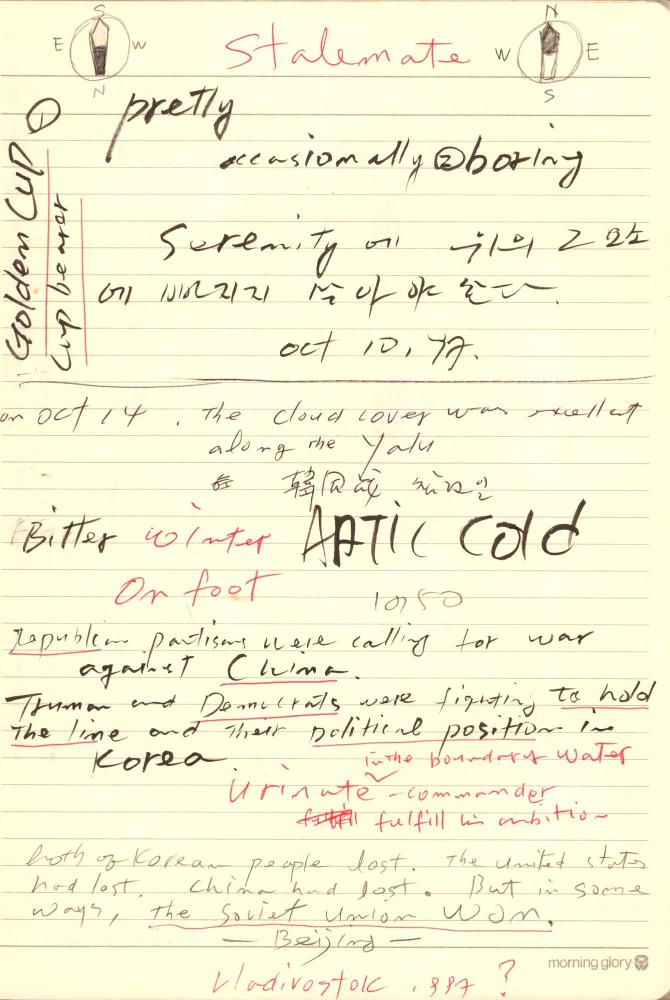 S
E W
N
Stalemate
N
W E
S
① pretty
occasionally ② boring
Golden Cup
Cup bearer
Serenity 에 위의 2 요소
에 빠지지 않아야 한다.
oct 10, 97.
on oct 14, The cloud cover was excellent
along the Yalu
韓国戦
Bitter winter ARTIC Cold
On foot 1950
Republican partisans were calling for war
against China.
Truman and Democrats were fighting to hold
the line and their political position in
Korea.
in the boundary water
Urinate - commander
fulfill his ambition
both of Korean people lost. The United States
had lost. China had lost. But in some
ways, the Soviet Union won.
— Beijing —
morning glory
Vladivostok, 1997 ?